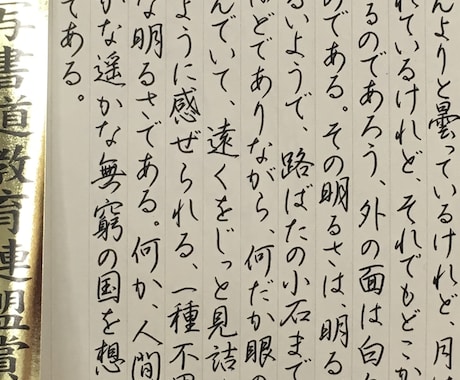 んよりと曇っているけれど、月
れているけれど、それでもどこか
るのであろう、外の面は白
のである。その明るさは、明る
るいようで、路ばたの小石まで
ほどでありながら、何だか眼の
んでいて、遠くをじっと見詰
ように感ぜられる、一種不
な明るさである。何か、人間
かな遥かな無窮の国を想
である。
写書道教育連盟賞